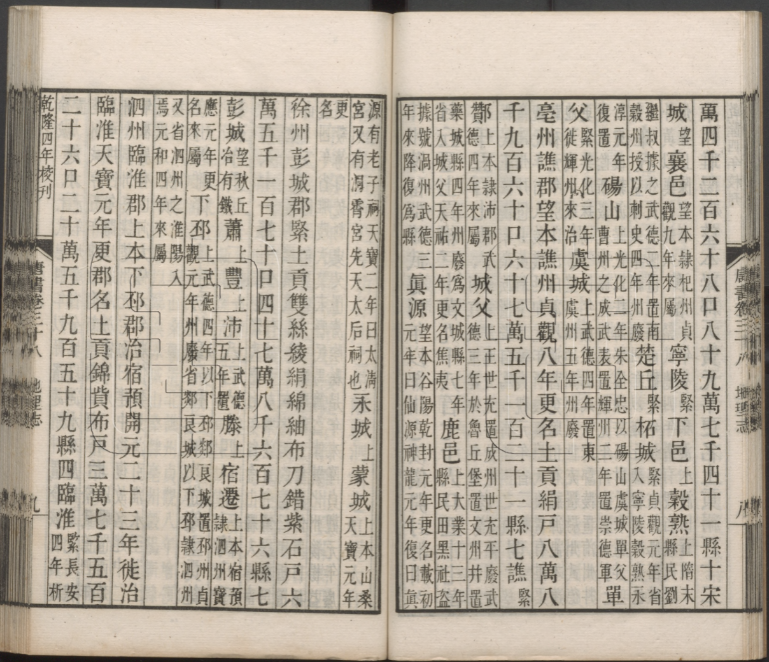 萬四千二百六十八口八十九萬七千四十一縣十宋
城望襄邑望本隸杞州貞觀九年來屬寧陵緊下邑上穀熟上隋末縣民劉
繼叔據之武德二年置南穀州授以刺史四年州廢楚丘緊柘城緊貞觀元年省入寧陵穀熟永
淳元年復置碭山上光化二年朱全忠以碭山虞城單父曹州之成武表置輝州三年置崇德軍單
父緊光化三年徙輝州來治虞城上武德四年置東虞州五年州廢
亳州譙郡望本譙州貞觀八年更名土貢絹戶八萬八
千九百六十口六十七萬五千一百二十一縣七譙緊
酇上本隸沛郡武德四年來屬城父上王世充置成州世充平廢武德三年於魯丘堡置文州并置
藥城縣四年州廢爲文城縣七年省入城父天祐二年更名焦夷鹿邑上大業十三年縣民田黑社盜
據號渦州武德三年來降復爲縣眞源望本谷陽乾封元年更名載初元年曰仙源神龍元年復曰眞
唐書卷三十八 地理志 八
源有老子祠天寶二年曰太清宮又有洞霄宮先天太后祠也永城上蒙城上本山桑天寶元年
更名
徐州彭城郡緊土貢雙絲綾絹綿紬布刀錯紫石戶六
萬五千一百七十口四十七萬八千六百七十六縣七
彭城望秋丘冶有鐵蕭上豐上沛上武德五年置滕上宿遷上本宿預隸泗州寶
應元年更名來屬下邳上武德四年以下邳郯良城置邳州貞觀元年州廢省郯良城以下邳隸泗州
又省泗州之淮陽入焉元和四年來屬
泗州臨淮郡上本下邳郡治宿預開元二十三年徙治
臨淮天寶元年更郡名土貢錦貲布戶三萬七千五百
二十六口二十萬五千九百五十九縣四臨淮緊長安四年析
乾隆四年校刊 唐書卷三十八 地理志 九